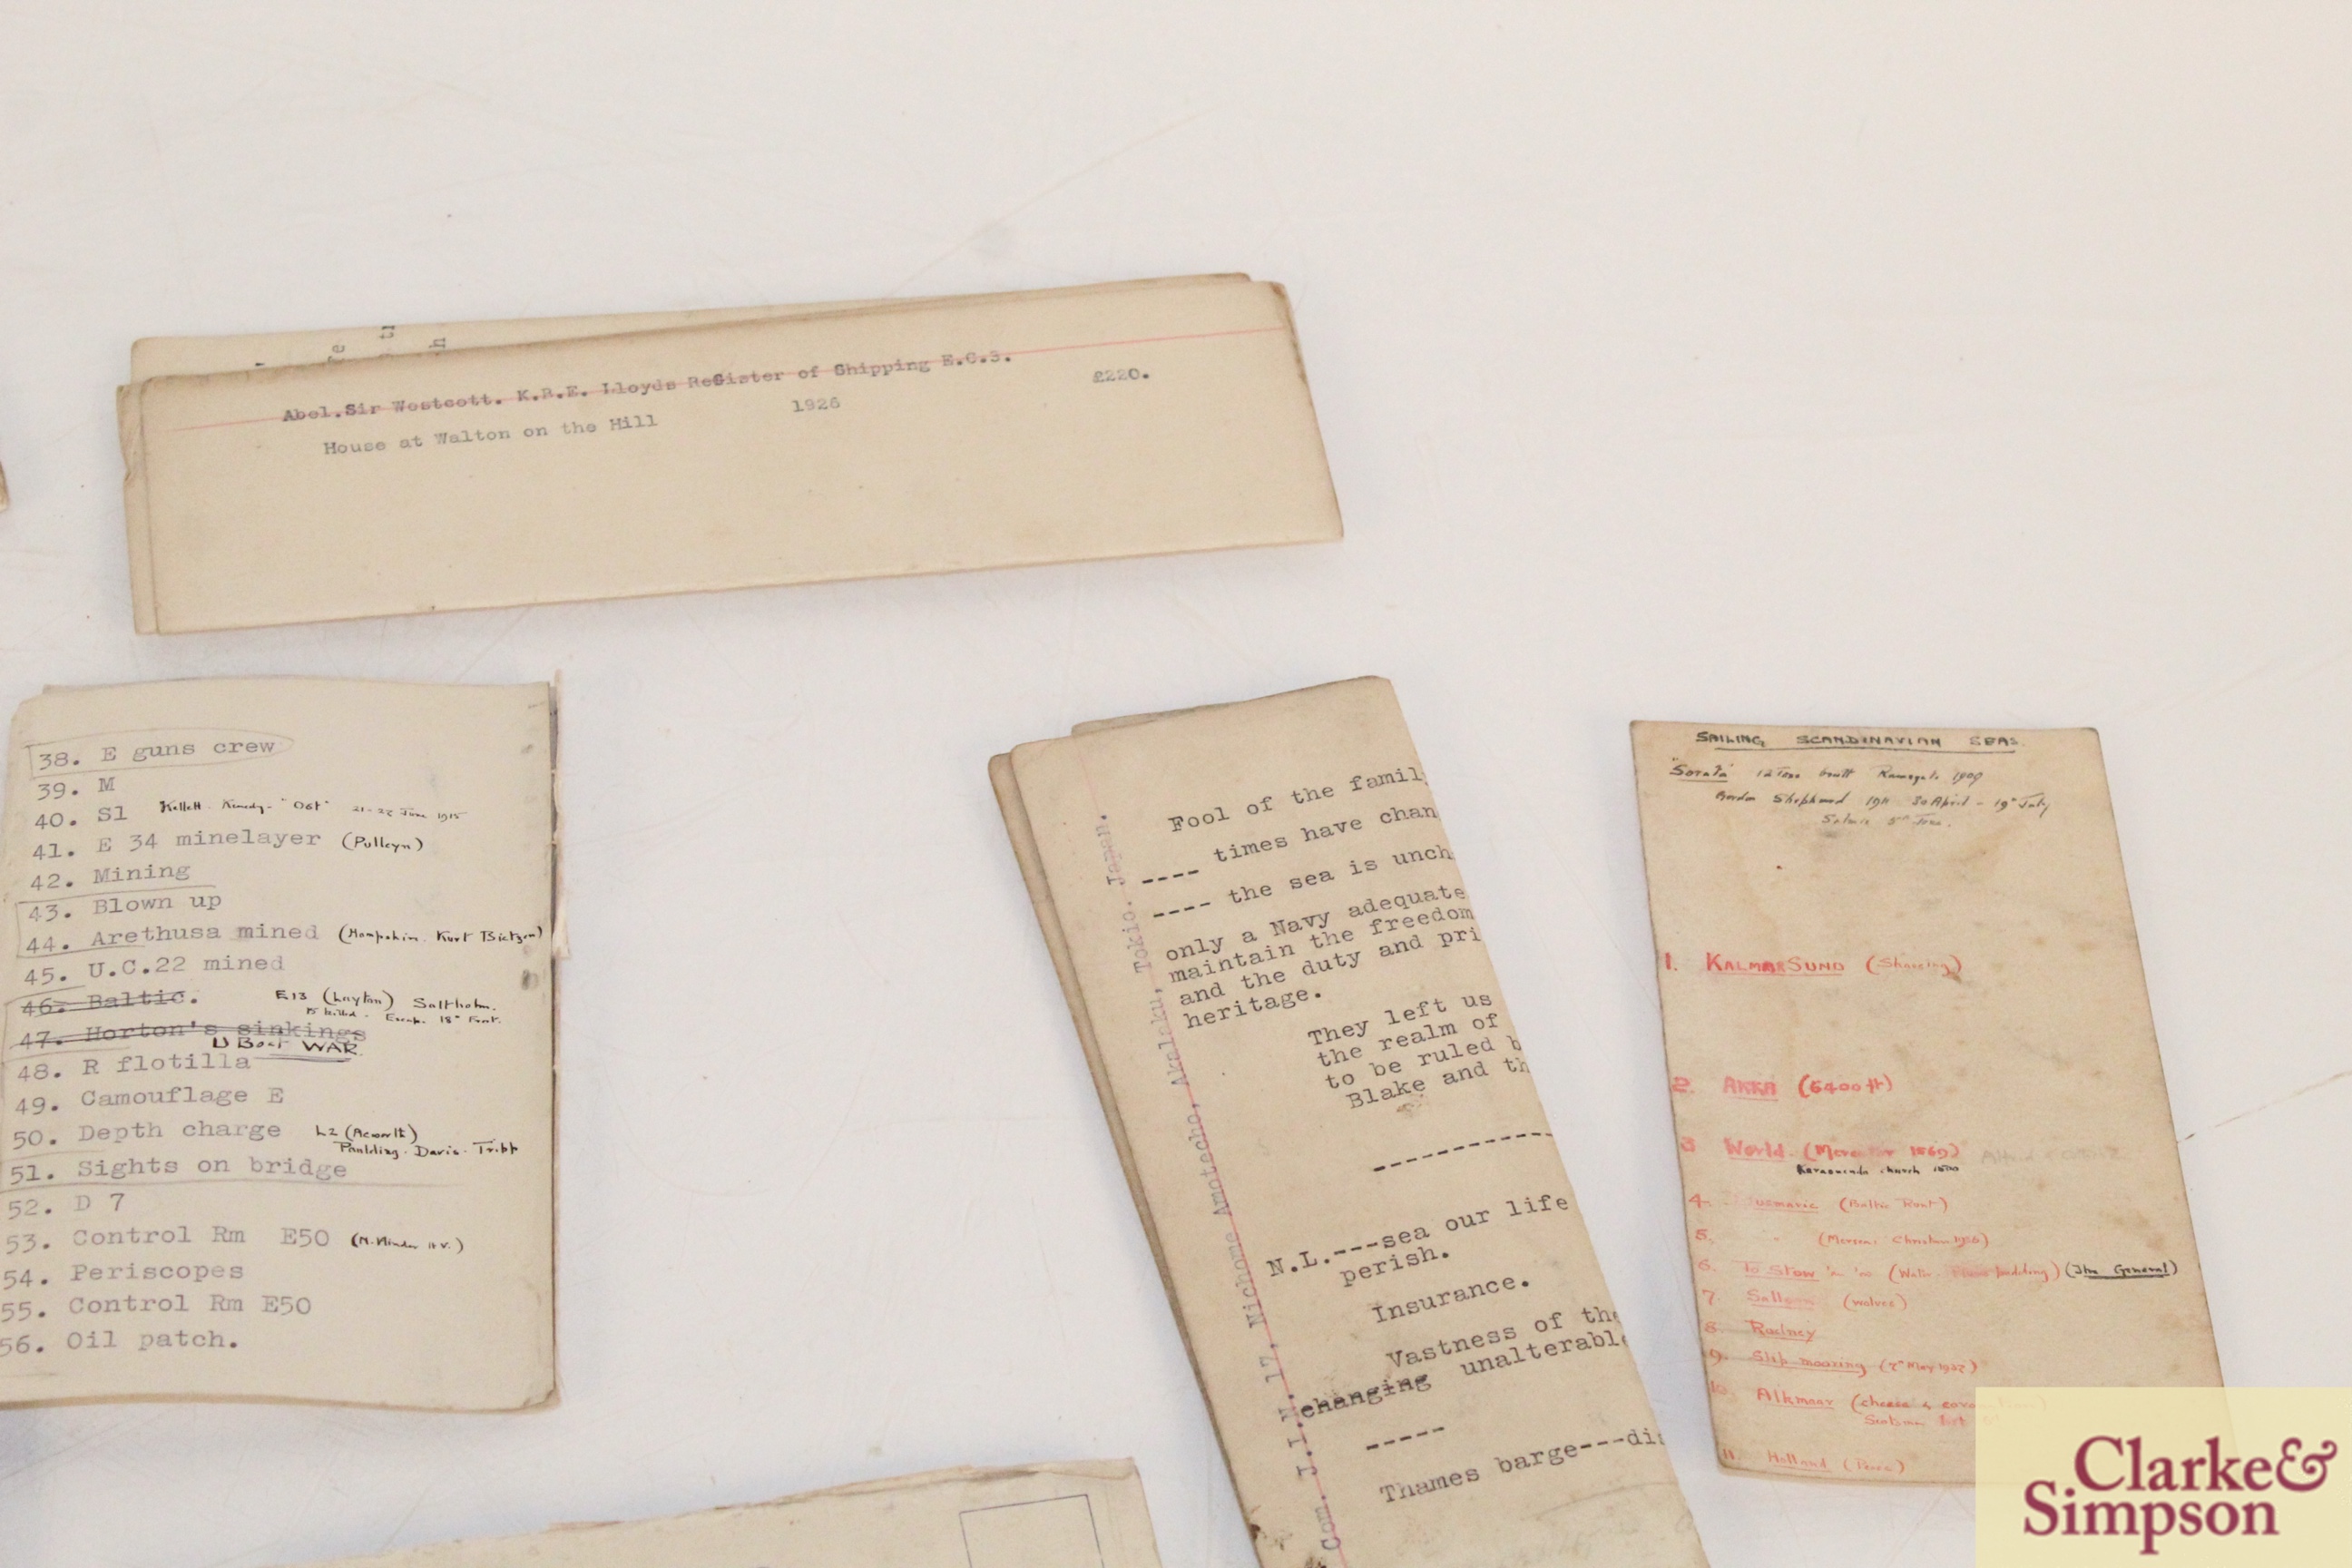 Abel.Sir Westcott. K.B.E. Lloyds ReGister of Shipping E.C.3.
House at Walton on the Hill 1926 £220.
38. E guns crew
39. M
40. S1 Kellett - Kennedy - "Ost" 21-22 June 1915
41. E 34 minelayer (Pulleyn)
42. Mining
43. Blown up
44. Arethusa mined
45. U.C.22 mined
46. Baltic. E13 (Layton) Saltholm.
15 killed.
47. Horton's sinkings
U Boat WAR
48. R flotilla
49. Camouflage E
50. Depth charge L2 (Acworth)
Paulding. Davis. Tribb
51. Sights on bridge
52. D 7
53. Control Rm E50
54. Periscopes
55. Control Rm E50
56. Oil patch.
Com. J.I. 17, Nichome Amotecho, Akalaku, Tokio. Japan.
Fool of the famil
---- times have chan
---- the sea is unch
only a Navy adequate
maintain the freedom
and the duty and pri
heritage.
They left us
the realm of
to be ruled b
Blake and th
------------
N.L.---sea our life
perish.
Insurance.
Vastness of the
changing unalterable
-----
Thames barge---di
SAILING SCANDINAVIAN SEAS.
"Sorata" 12 Tons built Ramsgate 1909
Gordon Shephard 1911 30 April - 19th July
1. KALMARSUND (Shaving)
2. AKKA (6400 ft)
3 World. (Mercator 1569)
church
4. (Baltic Port)
5.
6. To Stow (Jim General)
7. (wolves)
8. Rodney
9. Slip mooring (2nd May 1932)
10. Alkmaar (cheese &
11. Holland (Peace)
Clarke&
Simpson